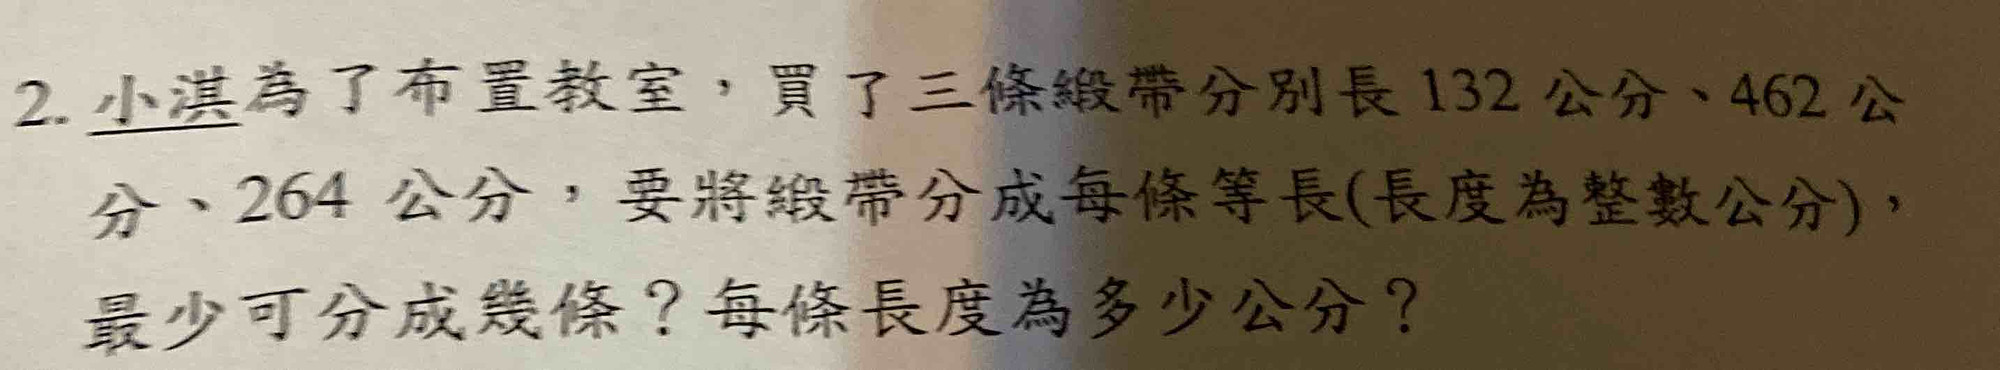 2. 小淇為了布置教室，買了三條緞帶分別長 132 公分、462 公
分、264 公分，要將緞帶分成每條等長(長度為整數公分)，
最少可分成幾條？每條長度為多少公分？